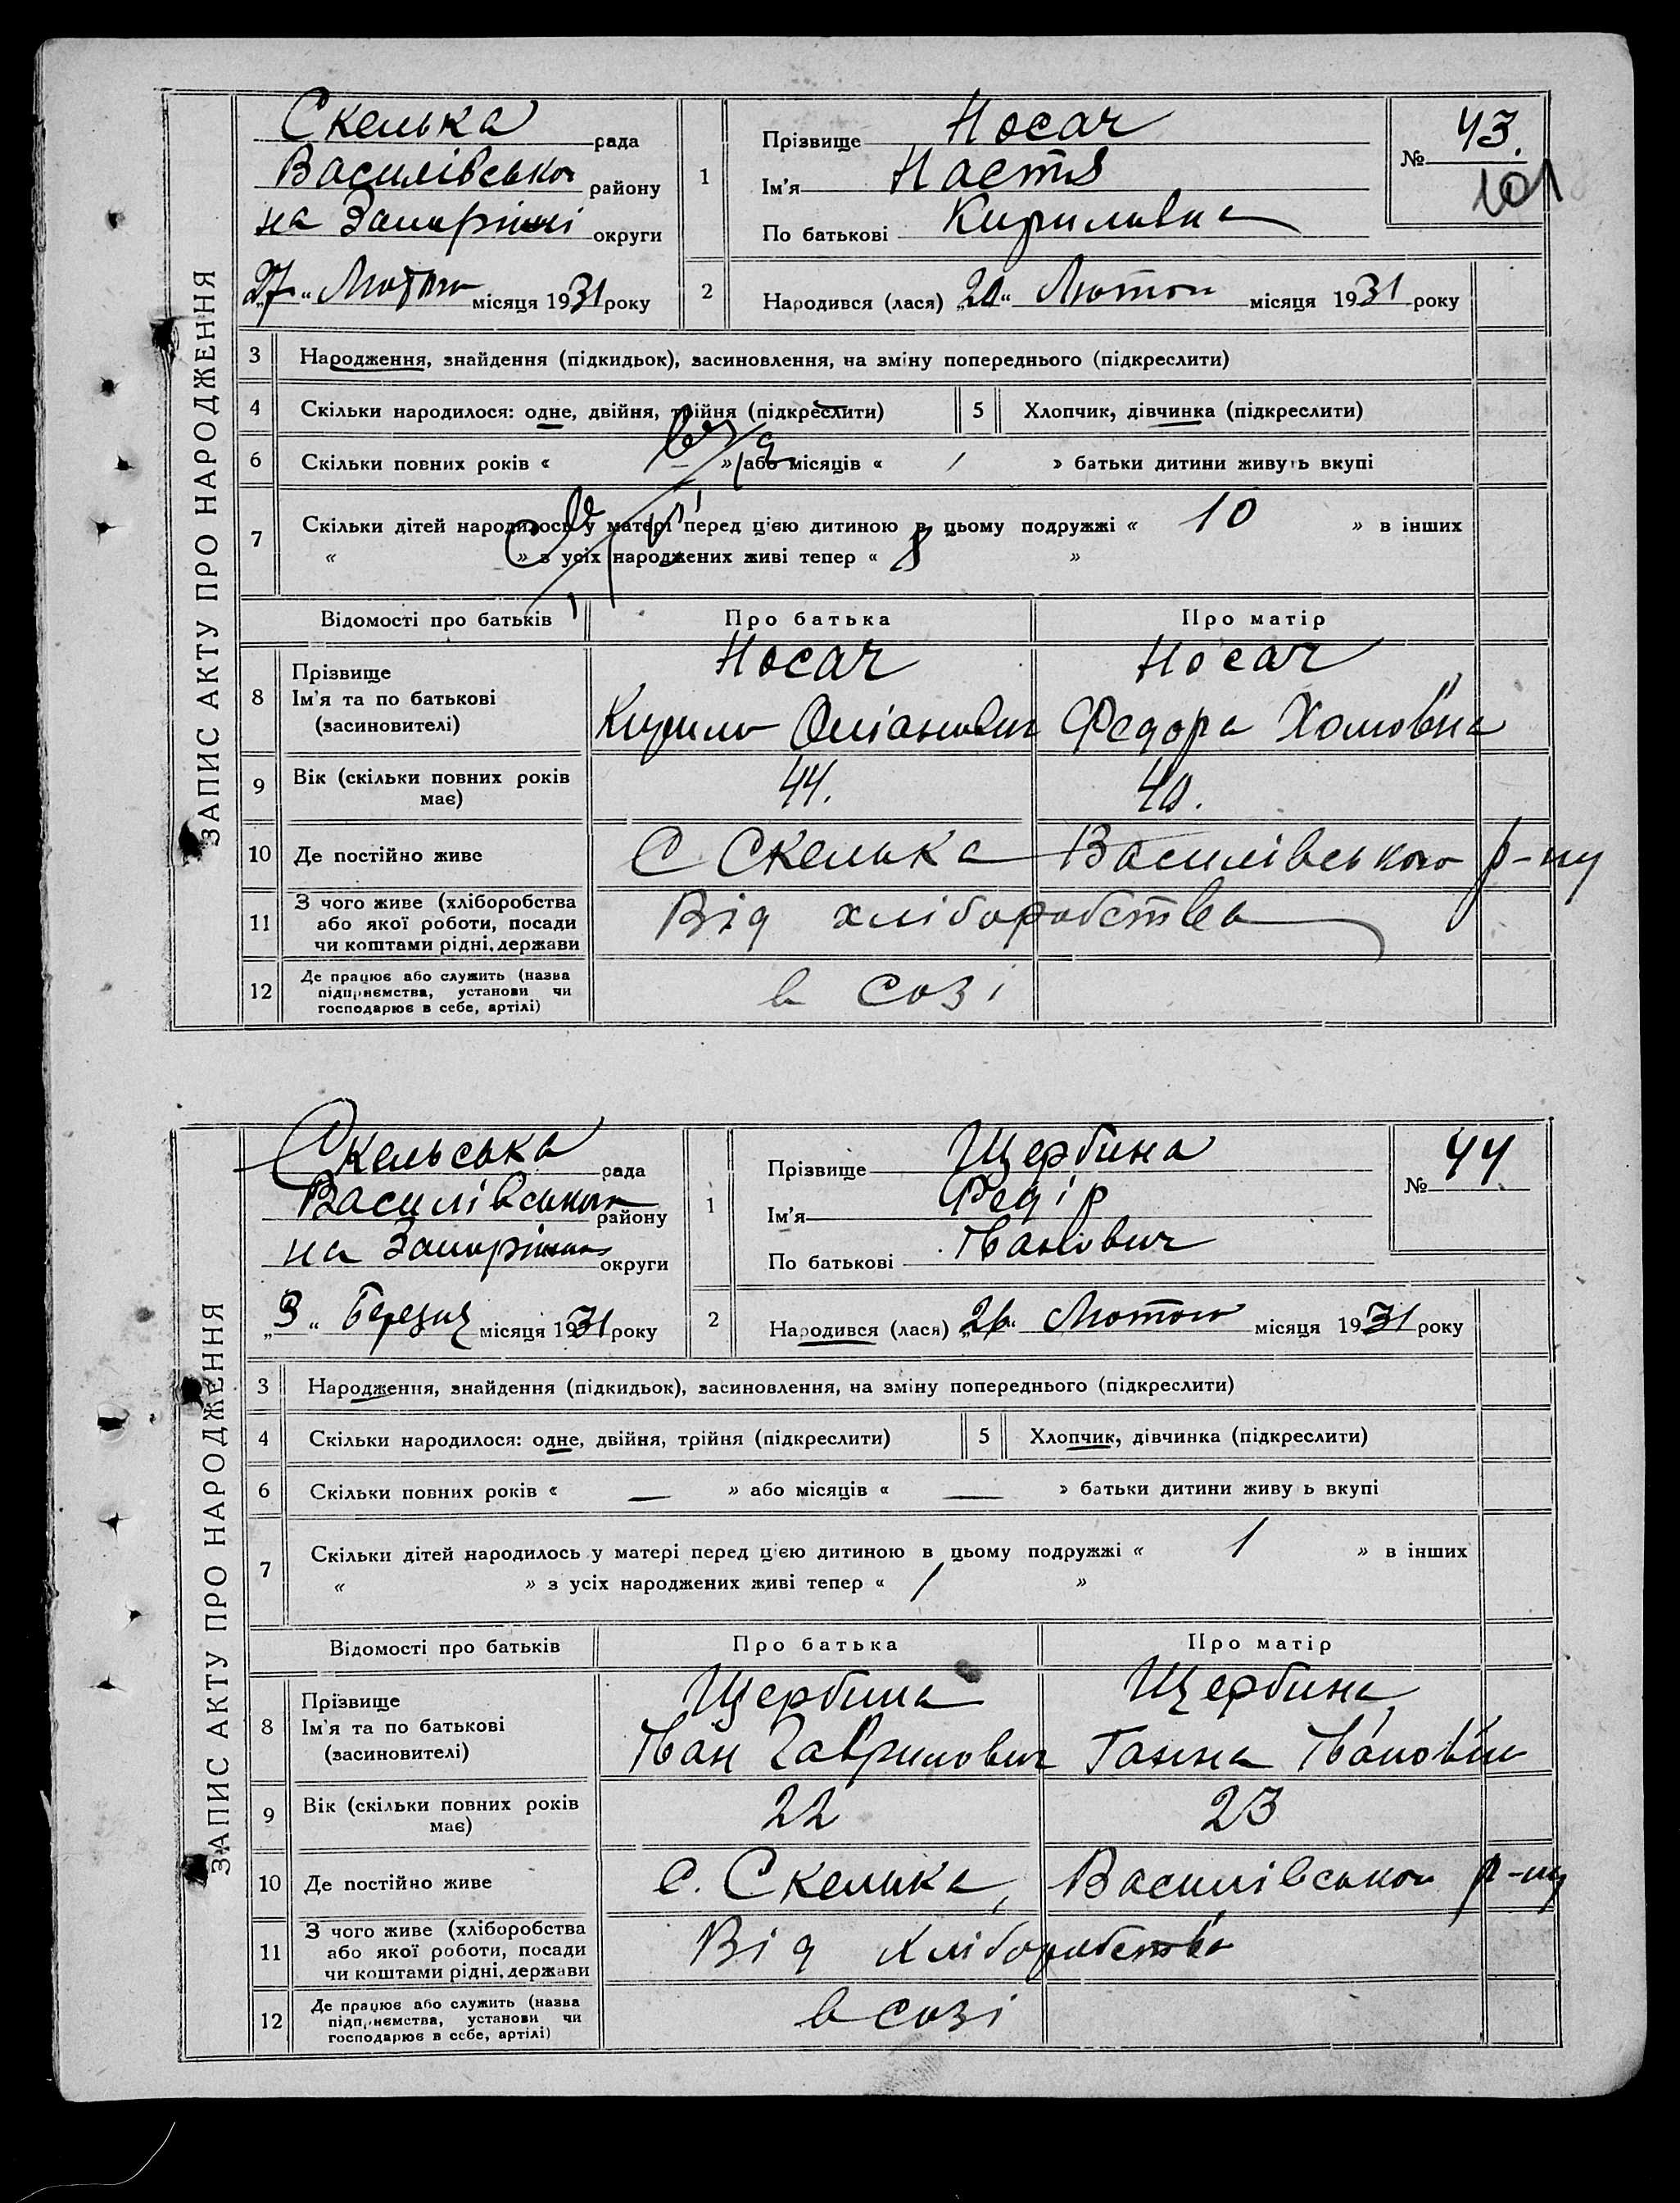 ЗАПИС АКТУ ПРО НАРОДЖЕННЯ
Скелька рада
Василівського району
на Запоріжжі округи
„27“ Лютого місяця 1931 року
1 Прізвище Носач
Ім'я Настя
По батькові Кирилівна
№ 43.
101
2 Народився (лася) „20“ Лютого місяця 1931 року
3 Народження, знайдення (підкидьок), засиновлення, на зміну попереднього (підкреслити)
4 Скільки народилося: одне, двійня, трійня (підкреслити) 5 Хлопчик, дівчинка (підкреслити)
6 Скільки повних років « – » або місяців « / » батьки дитини живуть вкупі
7 Скільки дітей народилось у матері перед цією дитиною в цьому подружжі « 10 » в інших
« » з усіх народжених живі тепер « 8 »
Відомості про батьків Про батька Про матір
8 Прізвище Носач Носач
Ім'я та по батькові Кирило Федора Хомовна
(засиновителі)
9 Вік (скільки повних років має) 44. 40.
10 Де постійно живе С Скелька Василівського р-ну
11 З чого живе (хліборобства або якої роботи, посади чи коштами рідні, держави Від хліборобства
12 Де працює або служить (назва підприємства, установи чи господарює в себе, артілі) в созі
ЗАПИС АКТУ ПРО НАРОДЖЕННЯ
Скельська рада
Василівського району
на Запоріжжі округи
„3“ Березня місяця 1931 року
1 Прізвище Щербина
Ім'я Федір
По батькові Іванович
№ 44
2 Народився (лася) „26“ Лютого місяця 1931 року
3 Народження, знайдення (підкидьок), засиновлення, на зміну попереднього (підкреслити)
4 Скільки народилося: одне, двійня, трійня (підкреслити) 5 Хлопчик, дівчинка (підкреслити)
6 Скільки повних років « — » або місяців « — » батьки дитини живу ь вкупі
7 Скільки дітей народилось у матері перед цією дитиною в цьому подружжі « 1 » в інших
« » з усіх народжених живі тепер « 1 »
Відомості про батьків Про батька Про матір
8 Прізвище Щербина Щербина
Ім'я та по батькові Іван Гаврилович Ганна Івановна
(засиновителі)
9 Вік (скільки повних років має) 22 23
10 Де постійно живе с. Скелька, Василівського р-ну
11 З чого живе (хліборобства або якої роботи, посади чи коштами рідні, держави Від хліборобства
12 Де працює або служить (назва підприємства, установи чи господарює в себе, артілі) в созі